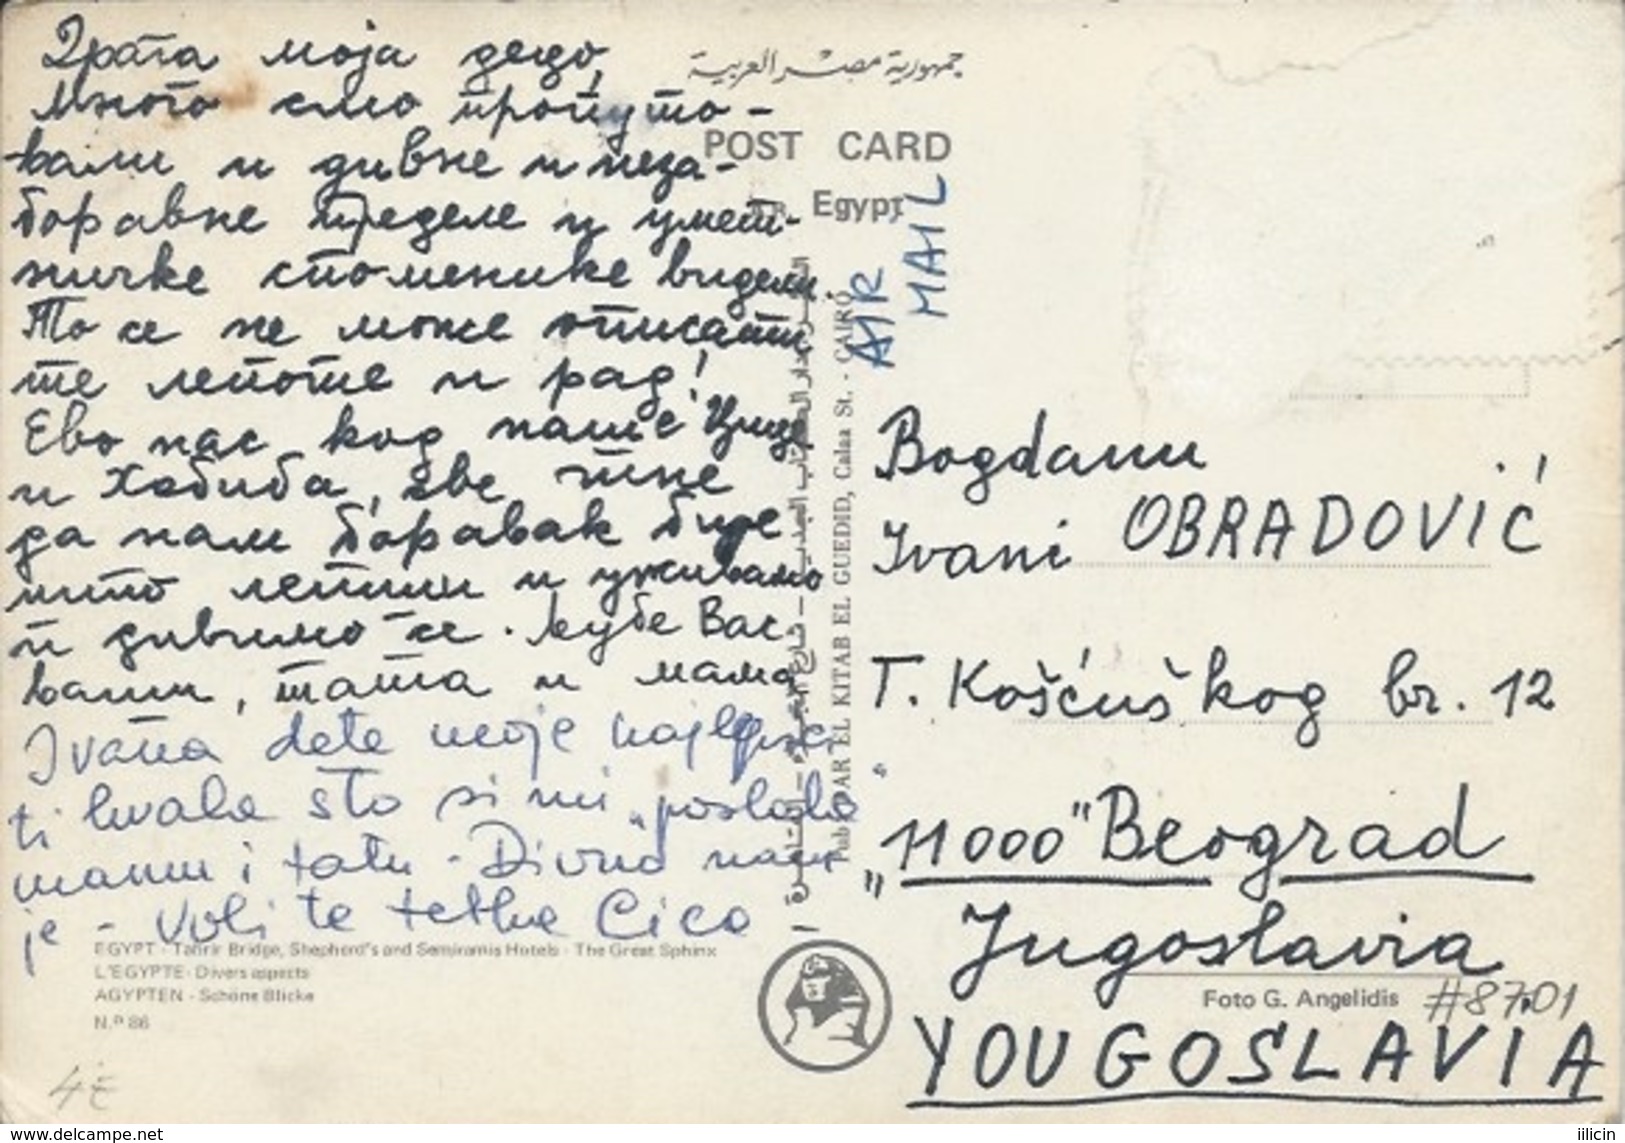 Драга моја децо,
Много смо пропуто-
вали и дивне и неза-
боравне пределе и умет-
ничке споменике видели.
То се не може описати
те лепоте и рад!
Ево нас код наше Цице
и Хабиба, све чине
да нам боравак буде
што лепши и уживамо
и дивимо се. Љубе Вас
ваши, тата и мама
Ivana dete moje najlepse
ti hvala što si mi "poslala"
mamu i tatu - Divno nam
je - Voli te tetka Cica
جمهورية مصر العربية
POST CARD
Egypt
AIR
MAIL
Pub. DAR EL KITAB EL GUEDID, Calaa St. - CAIRO
Bogdanu
Ivani OBRADOVIĆ
T. Košćuškog br. 12
"11000" Beograd
Jugoslavia
YOUGOSLAVIA
Foto G. Angelidis
#8701
EGYPT - Tahrir Bridge, Shepherd's and Semiramis Hotels - The Great Sphinx
L'EGYPTE - Divers aspects
AGYPTEN - Schöne Blicke
N.º 86
4E
www.delcampe.net
illicin